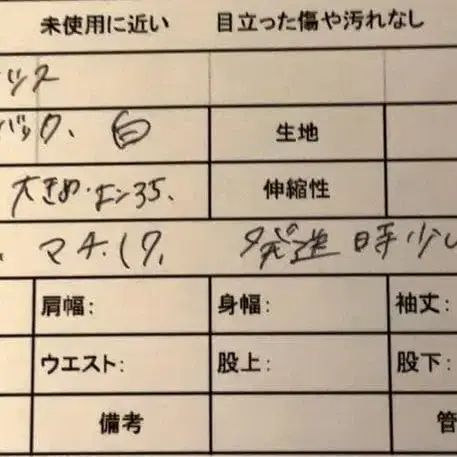 未使用に近い 目立った傷や汚れなし
ック、白 生地
大きめ・ 35、 伸縮性
マチ 17、 発送時少し
肩幅: 身幅: 袖丈:
ウエスト: 股上: 股下:
備考 管